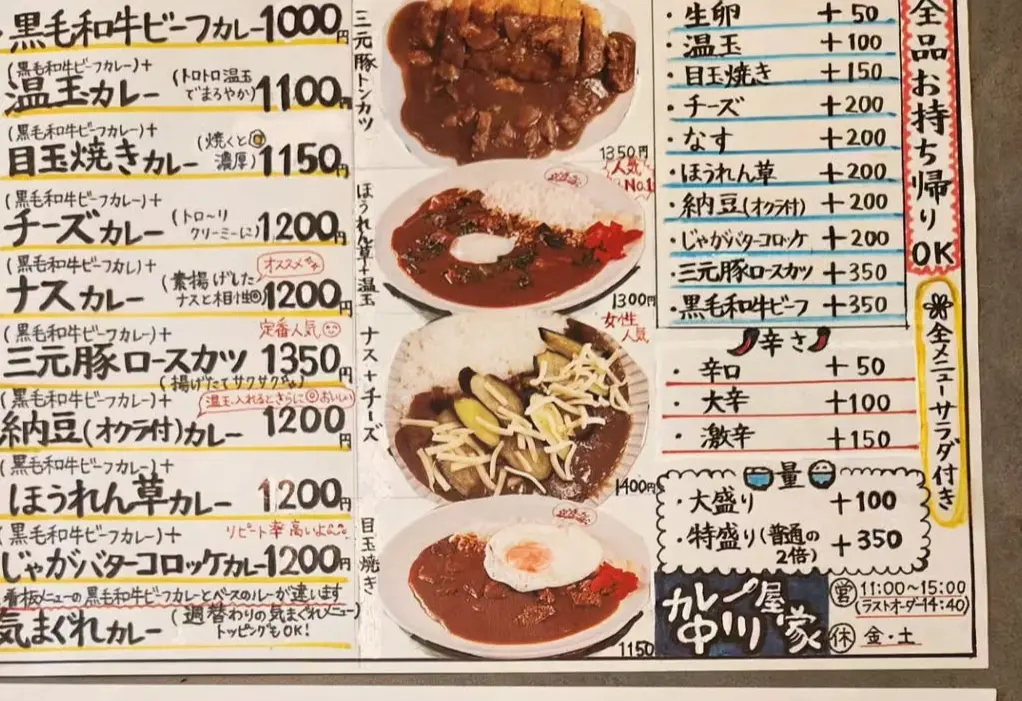 ・黒毛和牛ビーフカレー 1000円
(黒毛和牛ビーフカレー)+
温玉カレー (トロトロ温玉でまろやか) 1100円
(黒毛和牛ビーフカレー)+
目玉焼きカレー (焼くと濃厚) 1150円
(黒毛和牛ビーフカレー)+
チーズカレー (トロ〜リクリーミーに) 1200円
(黒毛和牛ビーフカレ)+
オススメ
ナスカレー (素揚げしたナスと相性◎) 1200円
(黒毛和牛ビーフカレー)+
定番人気
三元豚ロースカツ 1350円
(揚げたてサクサク)
(黒毛和牛ビーフカレー)+
温玉入れるとさらに◎おいしい
納豆(オクラ付)カレー 1200円
(黒毛和牛ビーフカレー)+
ほうれん草カレー 1200円
(黒毛和牛ビーフカレー)+
リピート率高いよ
じゃがバターコロッケカレー 1200円
看板メニューの黒毛和牛ビーフカレーとベースのルーが違います
気まぐれカレー (週替わりの気まぐれメニュー)
トッピングもOK!
三元豚トンカツ
1350円
人気
No.1
ほうれん草+温玉
1300円
女性
人気
ナス+チーズ
1400円
目玉焼き
1150
・生卵 +50
・温玉 +100
・目玉焼き +150
・チーズ +200
・なす +200
・ほうれん草 +200
・納豆(オクラ付) +200
・じゃがバターコロッケ +200
・三元豚ロースカツ +350
・黒毛和牛ビーフ +350
辛さ
・辛口 +50
・大辛 +100
・激辛 +150
量
・大盛り +100
・特盛り(普通の2倍) +350
カレー屋
中川家
営 11:00〜15:00
(ラストオーダー14:40)
休 金・土
全品お持ち帰りOK
全メニューサラダ付き